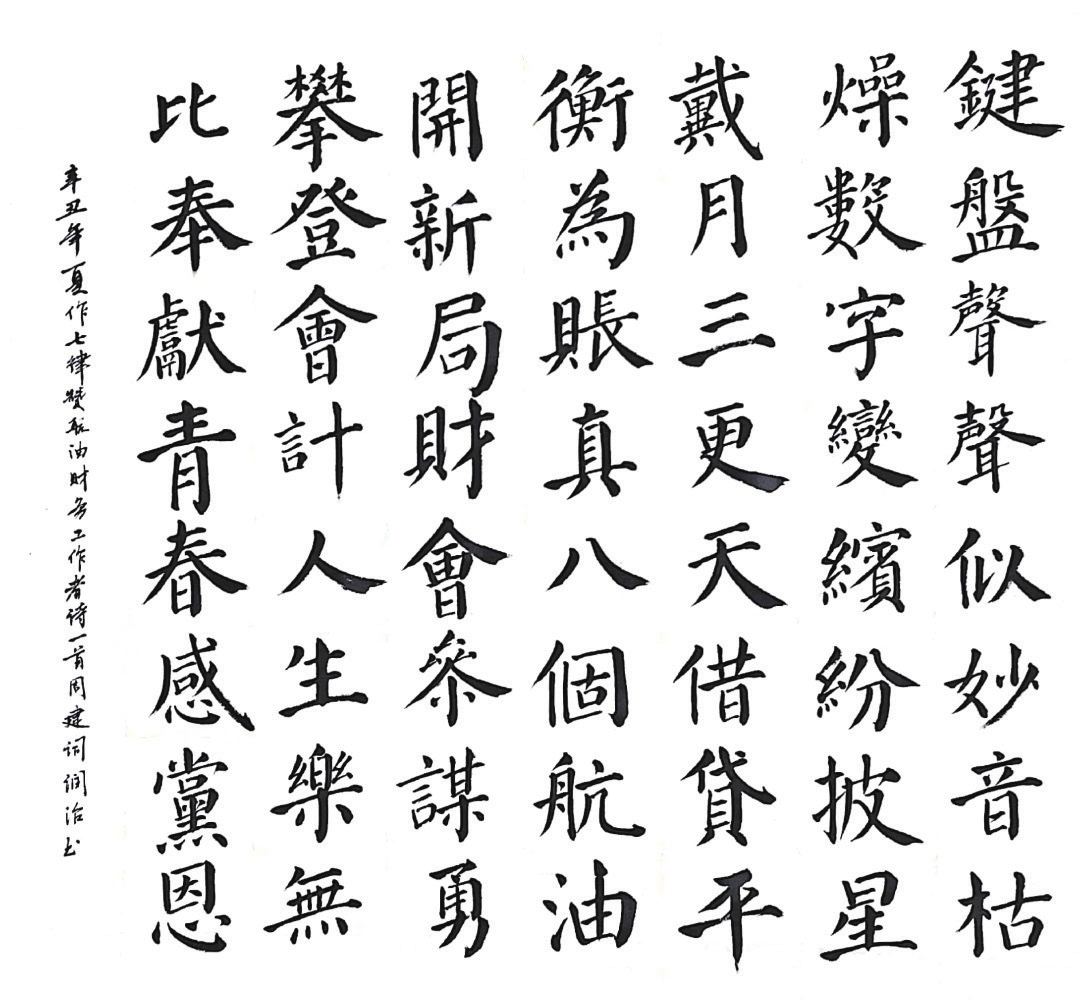 鍵盤聲聲似妙音枯
燥數字變繽紛披星
戴月三更天借貸平
衡為賬真八個航油
開新局財會參謀勇
攀登會計人生樂無
比奉獻青春感黨恩
辛丑年夏作七律赞航油财务工作者诗一首周建词润治书